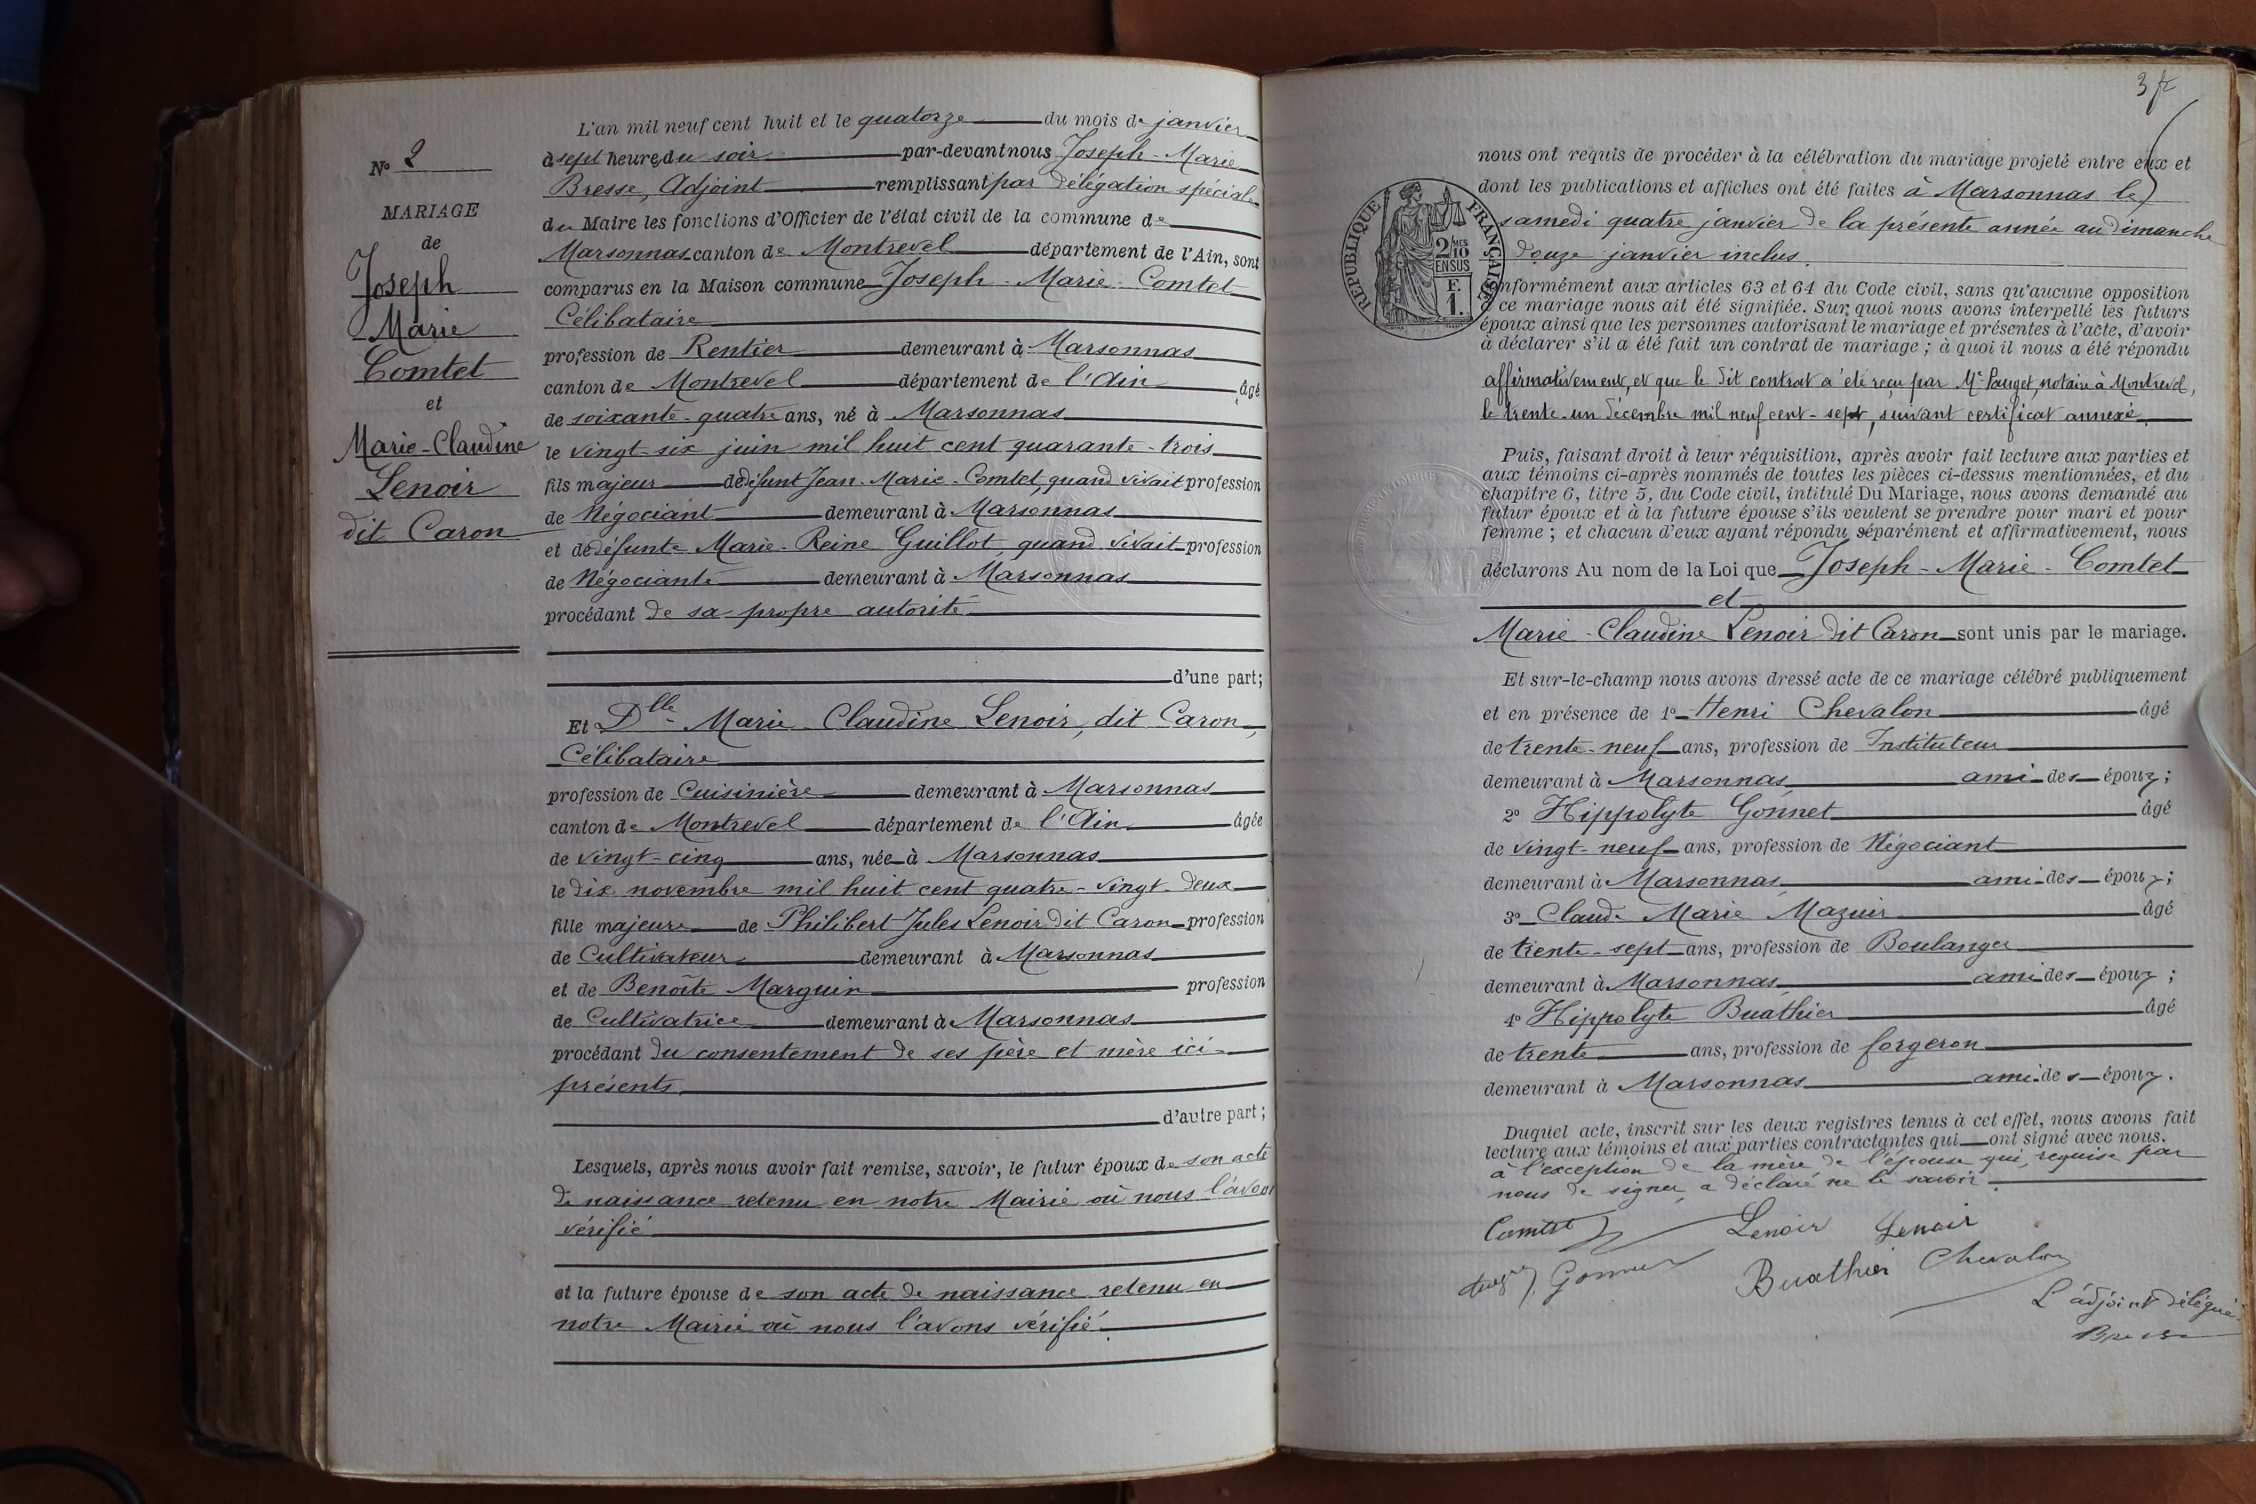 No 2
MARIAGE
de
Joseph
Marie
Comtet
et
Marie-Claudine
Lenoir
dit Caron
L'an mil neuf cent huit et le quatorze du mois de janvier
à sept heures du soir par-devant nous Joseph-Marie
Bresse, Adjoint remplissant par délégation spéciale
du Maire les fonctions d'Officier de l'état civil de la commune de
Marsonnas canton de Montrevel département de l'Ain, sont
comparus en la Maison commune Joseph-Marie-Comtet
Célibataire
profession de Rentier demeurant à Marsonnas
canton de Montrevel département de l'Ain âgé
de soixante-quatre ans, né à Marsonnas
le vingt-six juin mil huit cent quarante-trois
fils majeur de défunt Jean-Marie-Comtet, quand vivait profession
de Négociant demeurant à Marsonnas
et de défunte Marie-Reine Guillot, quand vivait profession
de Négociante demeurant à Marsonnas
procédant de sa propre autorité
d'une part;
Et Dlle Marie-Claudine Lenoir, dit Caron,
Célibataire
profession de Cuisinière demeurant à Marsonnas
canton de Montrevel département de l'Ain âgée
de vingt-cinq ans, née à Marsonnas
le dix novembre mil huit cent quatre-vingt-deux
fille majeure de Philibert Jules Lenoir dit Caron profession
de Cultivateur demeurant à Marsonnas
et de Benoîte Marguin profession
de Cultivatrice demeurant à Marsonnas
procédant du consentement de ses père et mère ici-
présents
d'autre part;
Lesquels, après nous avoir fait remise, savoir, le futur époux de son acte
de naissance retenu en notre Mairie où nous l'avons
vérifié
et la future épouse de son acte de naissance retenu en
notre Mairie où nous l'avons vérifié.
3 f
nous ont requis de procéder à la célébration du mariage projeté entre eux et
dont les publications et affiches ont été faites à Marsonnas le
samedi quatre janvier de la présente année au dimanche
douze janvier inclus.
RÉPUBLIQUE FRANÇAISE
2/10 MES
EN SUS
F.
1.
conformément aux articles 63 et 64 du Code civil, sans qu'aucune opposition
à ce mariage nous ait été signifiée. Sur quoi nous avons interpellé les futurs
époux ainsi que les personnes autorisant le mariage et présentes à l'acte, d'avoir
à déclarer s'il a été fait un contrat de mariage ; à quoi il nous a été répondu
affirmativement, et que le dit contrat a été reçu par Me Pauget, notaire à Montrevel,
le trente-un décembre mil neuf cent-sept, suivant certificat annexé.
Puis, faisant droit à leur réquisition, après avoir fait lecture aux parties et
aux témoins ci-après nommés de toutes les pièces ci-dessus mentionnées, et du
chapitre 6, titre 5, du Code civil, intitulé Du Mariage, nous avons demandé au
futur époux et à la future épouse s'ils veulent se prendre pour mari et pour
femme ; et chacun d'eux ayant répondu séparément et affirmativement, nous
déclarons Au nom de la Loi que Joseph-Marie-Comtet
et
Marie-Claudine Lenoir dit Caron sont unis par le mariage.
Et sur-le-champ nous avons dressé acte de ce mariage célébré publiquement
et en présence de 1° Henri Chevalon âgé
de trente-neuf ans, profession de Instituteur
demeurant à Marsonnas ami des époux;
2° Hippolyte Gonnet âgé
de vingt-neuf ans, profession de Négociant
demeurant à Marsonnas ami des époux;
3° Claude Marie Mazuir âgé
de trente-sept ans, profession de Boulanger
demeurant à Marsonnas ami des époux;
4° Hippolyte Buathier âgé
de trente ans, profession de forgeron
demeurant à Marsonnas ami des époux.
Duquel acte, inscrit sur les deux registres tenus à cet effet, nous avons fait
lecture aux témoins et aux parties contractantes qui ont signé avec nous.
à l'exception de la mère de l'épouse qui, requise par
nous de signer, a déclaré ne le savoir.
Comtet Lenoir Lenoir
Gonnet Buathier Chevalon
L'adjoint délégué
Bresse